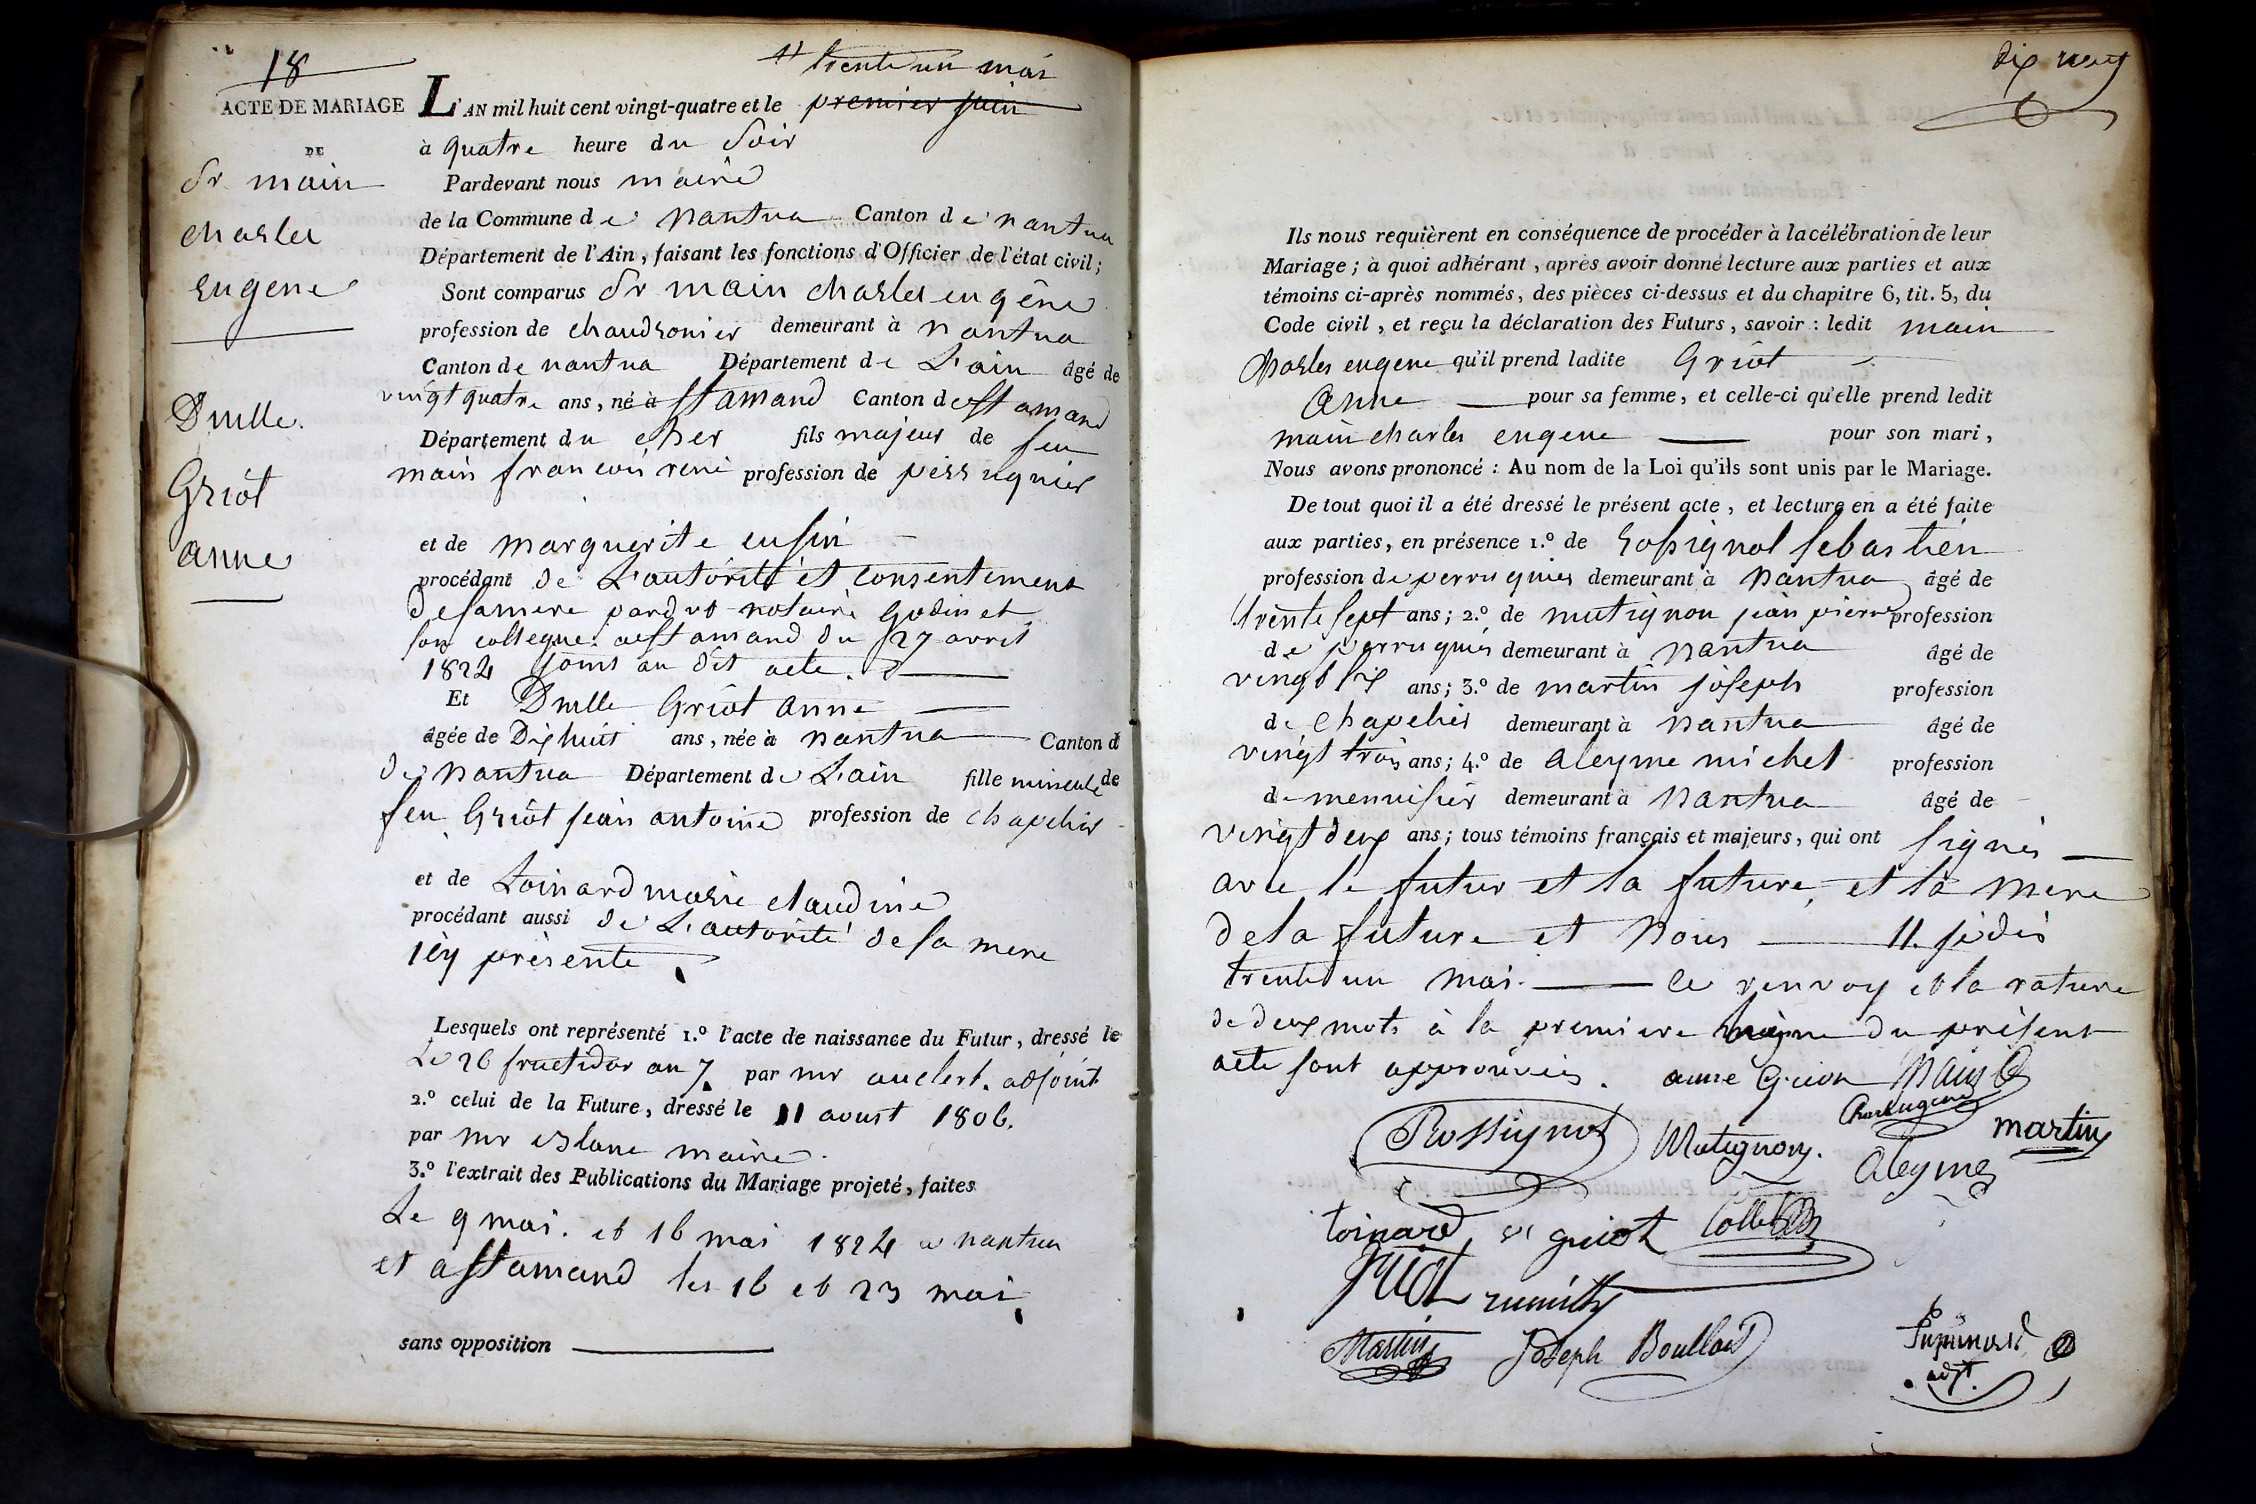 18
11 trente un mai
ACTE DE MARIAGE
DE
Sr main
charles
eugene
Dmlle.
Griot
anne
L'AN mil huit cent vingt-quatre et le premier juin
à quatre heure du Soir
Pardevant nous maire
de la Commune de nantua Canton de nantua
Département de l'Ain, faisant les fonctions d'Officier de l'état civil;
Sont comparus Sr main charles eugêne
profession de chaudronier demeurant à nantua
Canton de nantua Département de L'ain âgé de
vingt quatre ans, né à st amand Canton de st amand
Département du cher fils majeur de feu
main francois rené profession de perruquier
et de marguerite
procédant de L'autorité et consentement
de sa mere par dvt notaire godin et
son collegue. a st amand du 27 avril
1824 joint au dit acte.
Et Dmlle Griot anne
âgée de Dix huit ans, née à nantua Canton d
de nantua Département de L'ain fille mineure de
feu Griot jean antoine profession de chapelier
et de Toinard marie claudine
procédant aussi de L'autorité de sa mere
icy présente
Lesquels ont représenté 1.º l'acte de naissance du Futur, dressé le
Le 26 fructidor an 7. par mr auclert. adjoint
2.º celui de la Future, dressé le 11 aoust 1806.
par mr maire.
3.º l'extrait des Publications du Mariage projeté, faites
Le 9 mai. et 16 mai 1824 a nantua
et a st amand les 16 et 23 mai
sans opposition
dix neuf
Ils nous requièrent en conséquence de procéder à la célébration de leur
Mariage; à quoi adhérant, après avoir donné lecture aux parties et aux
témoins ci-après nommés, des pièces ci-dessus et du chapitre 6, tit. 5, du
Code civil, et reçu la déclaration des Futurs, savoir : ledit main
charles eugene qu'il prend ladite Griot
Anne pour sa femme, et celle-ci qu'elle prend ledit
main charles eugene pour son mari,
Nous avons prononcé : Au nom de la Loi qu'ils sont unis par le Mariage.
De tout quoi il a été dressé le présent acte, et lecture en a été faite
aux parties, en présence 1.º de Rossignol sebastien
profession de perruquier demeurant à nantua âgé de
trente sept ans; 2.º de mutignon jean pierre profession
de perruquier demeurant à nantua âgé de
vingt six ans; 3.º de martin joseph profession
de chapelier demeurant à nantua âgé de
vingt trois ans; 4.º de aleyme michel profession
de menuisier demeurant à nantua âgé de
vingt deux ans; tous témoins français et majeurs, qui ont signés
avec le futur et la future, et la mere
de la future et Nous 11. je dis
trente un mai. Le renvoy et la rature
de deux mots à la premiere ligne du présent
acte sont approuvés. anne Griot Main
Charl eugene
Rossignol Mutignon. martin
aleyme
toinard, Ve guiot
Martin Joseph Boulland
adjt.